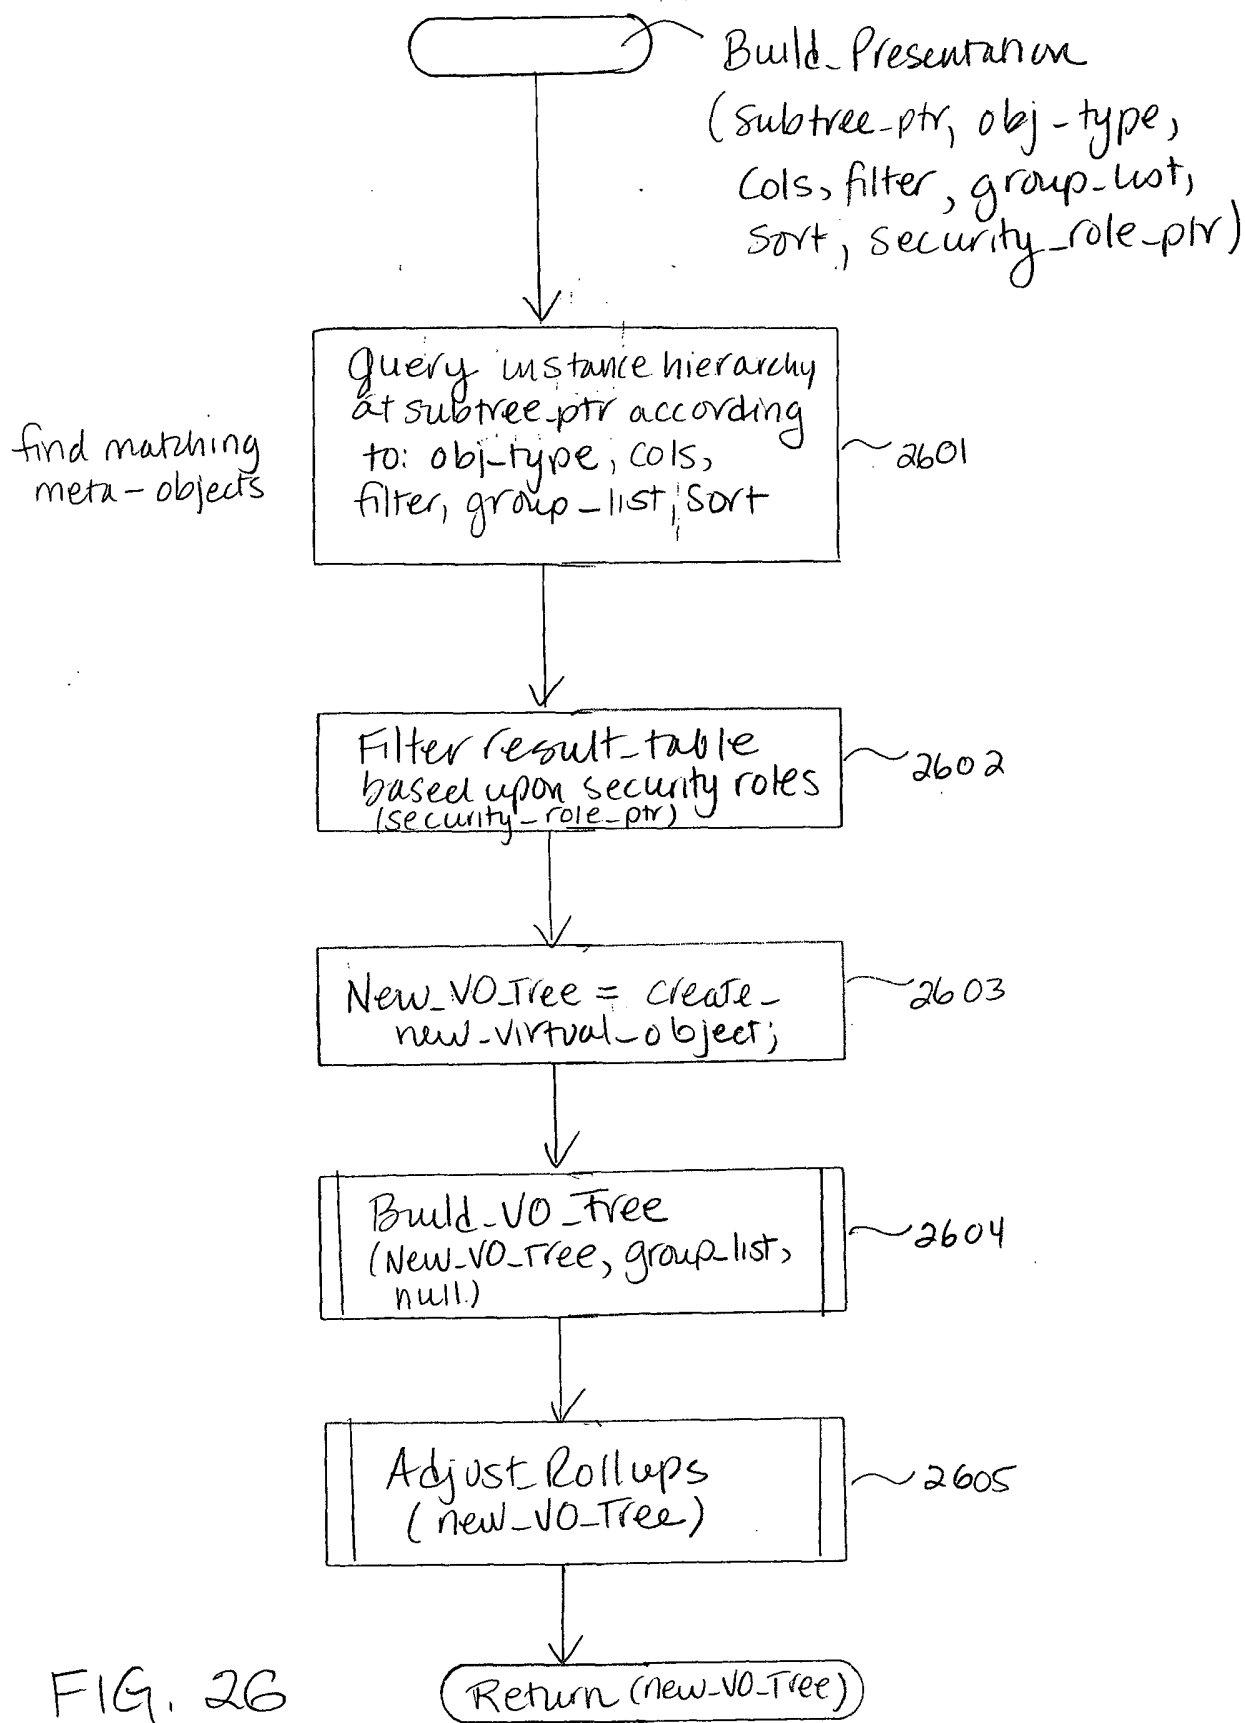 Build_Presentation
(subtree_ptr, obj-type,
cols, filter, group_list,
sort, security_role_ptr)
Query instance hierarchy
at subtree_ptr according
to: obj-type, cols,
filter, group_list, sort
find matching
meta-objects
2601
Filter result_table
based upon security roles
(security_role_ptr)
2602
New_VO_Tree = create_
new_virtual_object;
2603
Build_VO_Tree
(New_VO_Tree, group_list,
null)
2604
Adjust_Rollups
(new_VO_Tree)
2605
FIG. 26
Return (new_VO_Tree)